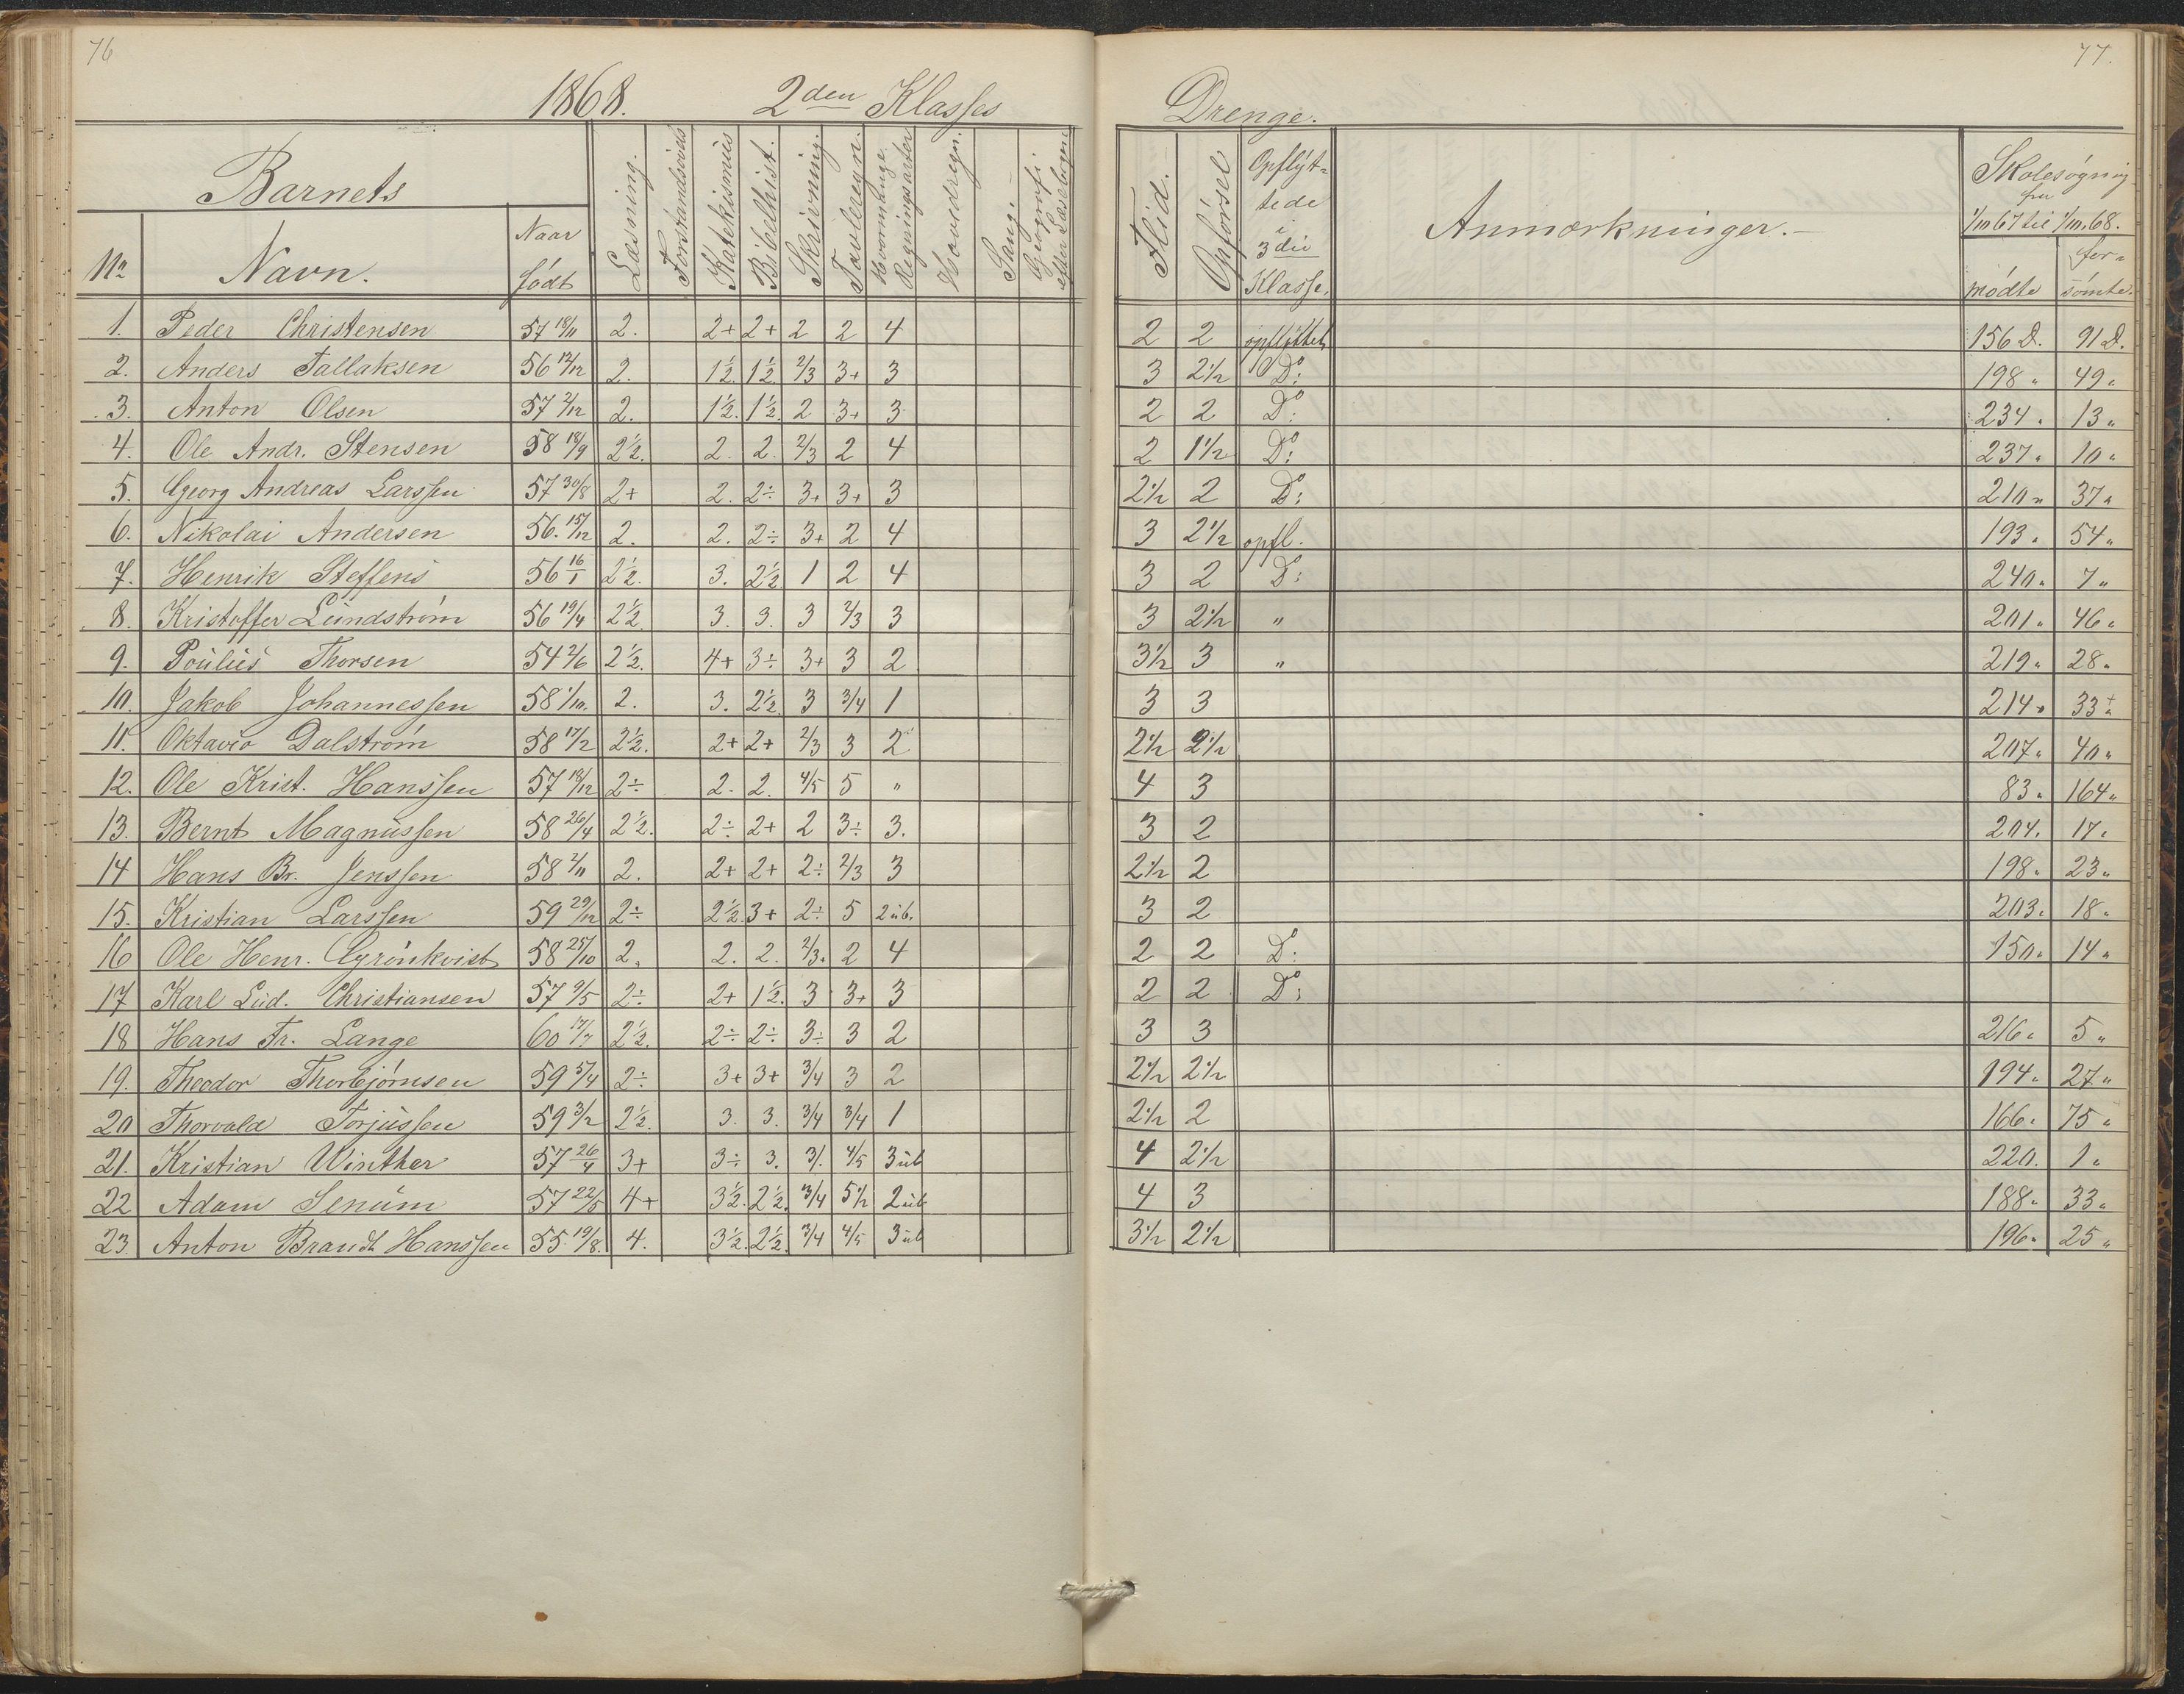 76
77.
1868. 2den Klasses Drenge.
Barnets
No Navn. Naar født Læsning. Forstandsøvels Katekismus Bibelhist. Skrivning. Tavleregn. Hvormange Regningsarter Hovedregn. Sang. Geografi efter Læsebogen Flid. Opførsel Opflyt-tede i 3die Klasse. Anmærkninger. Skolesøgning fra 1/10 67 til 1/10. 68. mødte for-sømte.
1. Peder Christensen 57 18/11 2. 2+ 2+ 2 2 4 2 2 opflyttet 156 D. 91 D.
2. Anders Tallaksen 56 12/12 2. 1½. 1½ 2/3 3+ 3 3 2½ Do: 198 " 49 "
3. Anton Olsen 57 2/12 2. 1½. 1½. 2 3+ 3 2 2 Do: 234 " 13 "
4. Ole Andr. Stensen 58 18/9 2½. 2. 2. 2/3 2 4 2 1½ Do: 237 " 10 "
5. Georg Andreas Larssen 57 30/8 2+ 2. 2÷ 3+ 3+ 3 2½ 2 Do: 210 " 37 "
6. Nikolai Andersen 56. 15/12 2. 2. 2÷ 3+ 2 4 3 2½ opfl. 193 " 54 "
7. Henrik Steffens 56 16/1 2½. 3. 2½ 1 2 4 3 2 Do: 240 " 7 "
8. Kristoffer Lundstrøm 56 19/4 2½ 3. 3. 3 2/3 3 3 2½ " 201 " 46 "
9. Poulus Thorsen 54 2/6 2½. 4+ 3÷ 3+ 3 2 3½ 3 " 219 " 28 "
10. Jakob Johannessen 58 1/10. 2. 3. 2½. 3 3/4 1 3 3 214 " 33 "
11. Oktavio Dalstrøm 58 17/2 2½. 2+ 2+ 2/3 3 2 2½ 2½ 207 " 40 "
12. Ole Krist. Hanssen 57 18/12 2÷ 2. 2. 4/5 5 " 4 3 83 " 164 "
13. Bernt Magnussen 58 26/4 2½. 2÷ 2+ 2 3÷ 3. 3 2 204 " 17 "
14 Hans Br. Jenssen 58 2/11 2. 2+ 2+ 2÷ 2/3 3 2½ 2 198 " 23 "
15. Kristian Larssen 59 29/12 2÷ 2½. 3+ 2÷ 5 2 ub. 3 2 203 " 18 "
16 Ole Henr. Grönkvist 58 25/10 2. 2. 2. 2/3. 2 4 2 2 Do: 150 " 14 "
17 Karl Lud. Christiansen 57 9/5 2÷ 2+ 1½. 3 3+ 3 2 2 Do:
18 Hans Fr. Lange 60 17/7 2½. 2÷ 2÷ 3÷ 3 2 3 3 216 " 5 "
19. Theodor Thorbjørnsen 59 5/4 2÷ 3+ 3+ 3/4 3 2 2½ 2½ 194 " 27 "
20 Thorvald Torjussen 59 3/2 2½. 3. 3. 3/4 3/4 1 2½ 2 166 " 75 "
21. Kristian Winther 57 26/4 3+ 3÷ 3. 3/. 4/5 3 ub 4 2½ 220. 1 "
22 Adam Senum 57 22/5 4+ 3½. 2½. 3/4 5½ 2 ub 4 3 188 " 33 "
23. Anton Brandt Hanssen 55. 19/8. 4. 3½. 2½. 3/4 4/5 3 ub 3½ 2½ 196 " 25 "